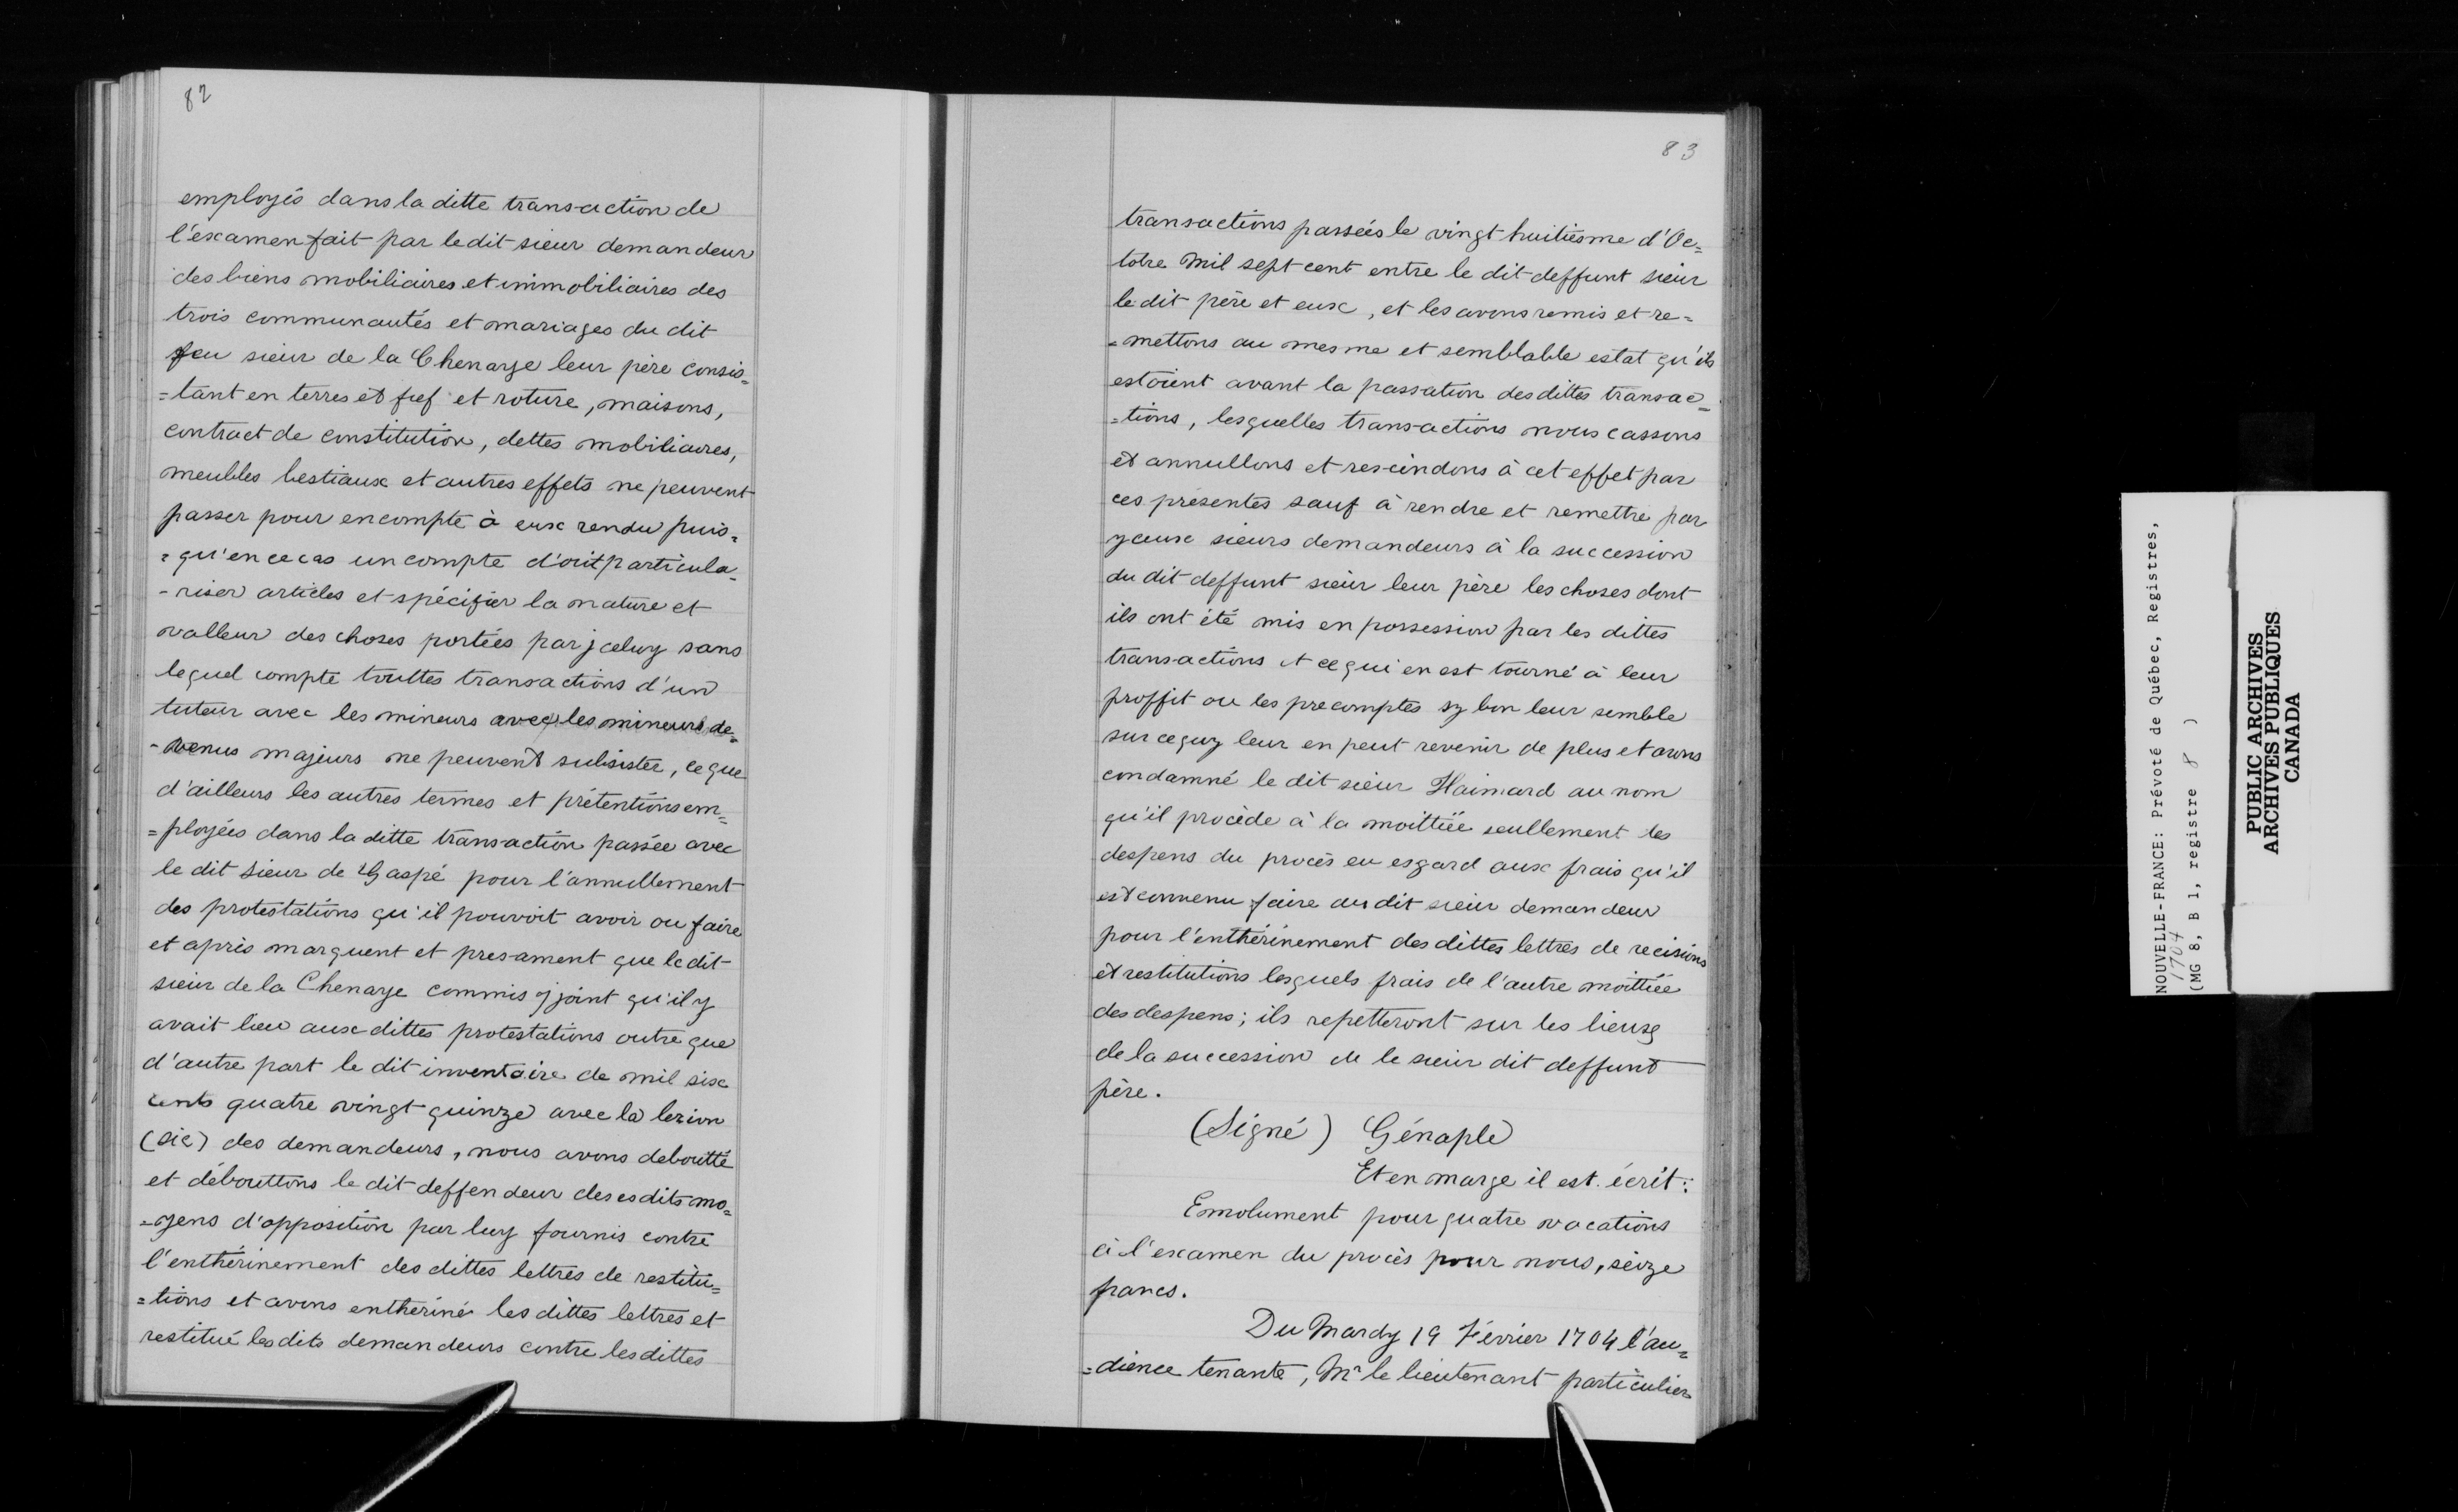 82
employés dans la ditte transaction de
l'examen fait par le dit sieur demandeur
des biens mobiliaires et immobiliaires des
trois communautés et mariages du dit
feu sieur de la Chenaye leur père consis=
=tant en terres et fief et roture, maisons,
contract de constitution, dettes mobiliaires,
meubles bestiaux et autres effets ne peuvent
passer pour en compte à eux rendu puis=
=qu'en ce cas un compte d'oit particula-
-riser articles et spécifier la nature et
valleur des choses portées par jceluy sans
lequel compte touttes transactions d'un
tuteur avec les mineurs avec les mineurs de=
-venus majeurs ne peuvent subsister, ce que
d'ailleurs les autres termes et prétentions em=
=ployées dans la ditte transaction passée avec
le dit sieur de Gaspé pour l'annullement
des protestations qu'il pouvoit avoir ou faire
et après marquent et presament que le dit
sieur de la Chenaye commis jjoint qu'il y
avait lieu aux dittes protestations outre que
d'autre part le dit inventaire de mil six
cents quatre vingt quinze avec la lezion
(sic) des demandeurs, nous avons deboutté
et débouttons le dit deffendeur des es dits mo=
=yens d'opposition par luy fournis contre
l'enthérinement des dittes lettres de restitu=
=tions et avons enthériné les dittes lettres et
restitué les dits demandeurs contre les dittes
83
transactions passées le vingt huitiesme d'Oc=
tobre Mil sept cent entre le dit deffunt sieur
le dit père et eux, et les avons remis et re=
=mettons au mesme et semblable estat qu'ils
estoient avant la passation des dittes transac=
=tions, lesquelles transactions nous cassons
et annullons et rescindons à cet effet par
ces présentes sauf à rendre et remettre par
yceux sieurs demandeurs à la succession
du dit deffunt sieur leur père les choses dont
ils ont été mis en possession par les dittes
transactions et ce qui en est tourné à leur
proffit ou les precomptes sy bon leur semble
sur ce quy leur en peut revenir de plus et avons
condamné le dit sieur Haimard au nom
qu'il procède à la moittiée seullement des
despens du procès eu esgard aux frais qu'il
est convenu faire au dit sieur demandeur
pour l'enthérinement des dittes lettres de recisions
et restitutions lesquels frais de l'autre moittiée
des despens; ils repetteront sur les lieux
de la succession de le sieur dit deffunt
père.
(Signé) Génaple
Et en marge il est écrit:
Emolument pour quatre vacations
à l'examen du procès pour nous, seize
francs.
Du Mardy 19 Février 1704 l'au=
=dience tenante, Mr le lieutenant particulier
NOUVELLE-FRANCE: Prévoté de Québec, Registres,
1704
(MG 8, B 1, registre 8 )
PUBLIC ARCHIVES
ARCHIVES PUBLIQUES
CANADA